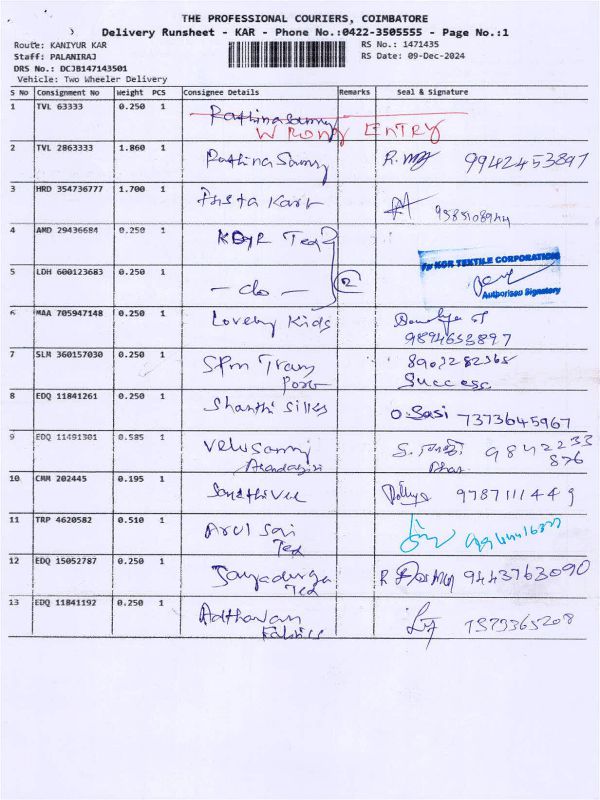 THE PROFESSIONAL COURIERS, COIMBATORE
Delivery Runsheet - KAR - Phone No.:0422-3505555 - Page No.:1
Route: KANIYUR KAR
RS No.: 1471435
Staff: PALANIRAJ
RS Date: 09-Dec-2024
DRS No.: DCJB147143501
Vehicle: Two Wheeler Delivery
S No Consignment No Weight PCS Consignee Details Remarks Seal & Signature
1 TVL 63333 0.250 1 Rathinasamy
WRONG ENTRY
2 TVL 2863333 1.860 1 Rathina Samy 9942453897
3 HRD 354736777 1.700 1 Kart
4 AMD 29436684 0.250 1 KGR Tex
For KGR TEXTILE CORPORATION
Authorised Signatory
5 LDH 600123683 0.250 1 - do - 2
6 MAA 705947148 0.250 1 Lovely Kids
9894653897
7 SLM 360157030 0.250 1 SPM Trans
Port
Success
8 EDQ 11841261 0.250 1 Shanthi Silks O. Sasi 7373645967
9 EDQ 11491301 0.585 1 Velusamy 9842233
876
10 CMM 202445 0.195 1 9787111449
11 TRP 4620582 0.510 1 Arul Sai
Tex
12 EDQ 15052787 0.250 1 Jayadurga
Tex
9443763090
13 EDQ 11841192 0.250 1 Adthavan
Fabrics